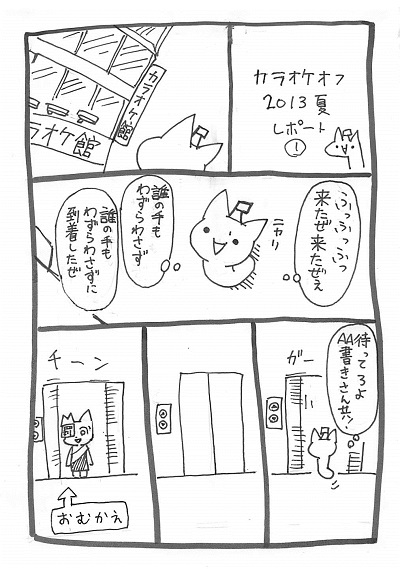 カラオケオフ
2013夏
レポート
①
カラオケ館
カラオケ館
ふっふっふっ
来たぜ来たぜぇ
ニヤリ
誰の手も
わずらわさず
誰の手も
わずらわさずに
到着したぜ
待ってろよ
AA書きさん共!
ガー
チーン
おむかえ